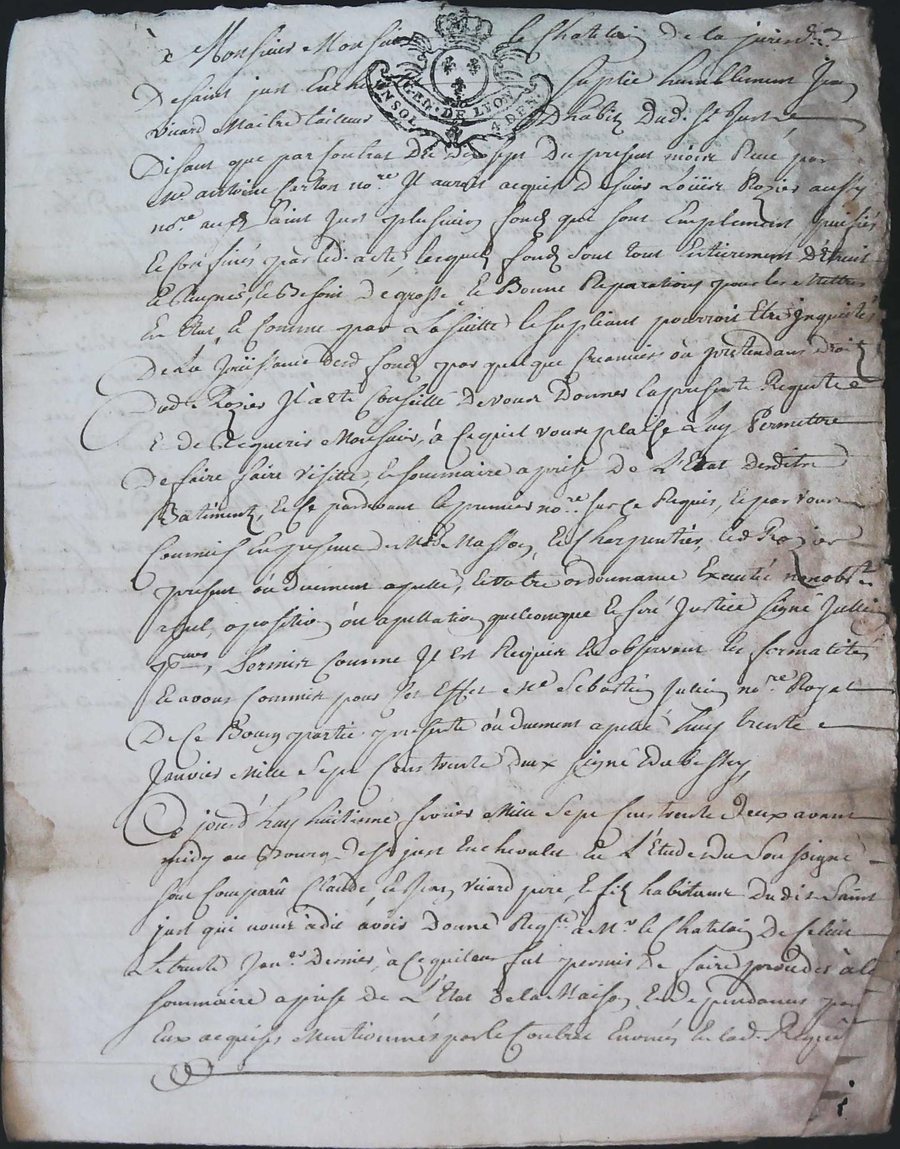 A Monsieur Monsieur le Chatelain de la jurisd.on
De saint just En che supplie humblement Jean
viiard Maitre tailleur D habit Dud. St Just
GEN. DE LYON
UN SOL 4 DEN
Disant que par Contrat Du Dix sept Du present mois Receu par
me antoine Carton no.re Il auroit acquis De sieur Loüis Rozier aussy
no.re aud. Saint Just plusieurs fonds que sont Emplement
Et Confinés par led. acte lesquels fonds sont tout Entierement Détruit
Et Besoin De grosse Et Bonne Reparations pour les Mettre
En Etat, Et Comme par La suitte le supliant pourroit Etre Inquietés
De La Joüissance desd. fonds par quelque Creanciers ou pretendans Droits
Dud. Rozier Il a été Conseillé De vous Donner la presente Requette
Et De Requerir Monsieur, à Ce qu'il vous plaise Luy Permettre
De faire faire visitte, Et sommaire aprise De L'Etat Desdits
Batiments, Et Ce pardevant le premier no.re sur Ce Requis, Et par vous
Commis En presence De Masson, Et Charpentier, led. Rozier
present ou Duement apellé, Et votre ordonnance Executée nonobst.
opposition ou apellation quelconque Et feré Justice signé Jullien
permis Comme Il Est Requis En observant les formalités
Et avons Commis pour Cet Effet Me Sebastien Julien no.re Royal
De Ce Bourg partie presente ou Duement apellé huy trente
Janvier Mille Sept Cens trente deux signé Dubessey
Ce jourd'huy huitieme fevrier Mille Sept Cens trente Deux avant
midy au Bourg De St just En chevalet En L'Etude Du Soussigné
sont Comparû Claude Et Jean viiard pere, Et fils habitans Dudit Saint
just qui nous a dit avoir Donné Req.te à Mr. le Chatelain De Celieu
Le trente Janer. Dernier, à Ce qu'il leur fut permis De faire proceder à la
sommaire aprise De L'Etat De la Maison, En Dependances par
Eux acquises Mentionnées par le Contrat Enoncé En lad. Requête